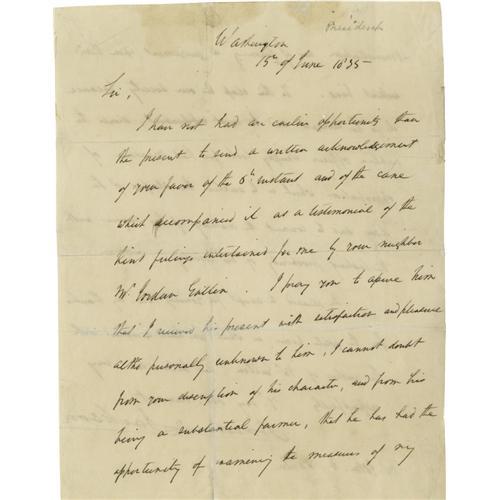 President
Washington
15th of June 1835
Sir,
I have not had an earlier opportunity than
the present to send a written acknowledgement
of your favor of the 6th instant and of the cane
which accompanied it as a testimonial of the
kind feelings entertained for me by your neighbor
Mr Jordan Gatlin. I pray you to assure him
that I received his present with satisfaction and pleasure
altho personally unknown to him, I cannot doubt
from your description of his character, and from his
being a substantial farmer, that he has had the
opportunity of examining the measures of my